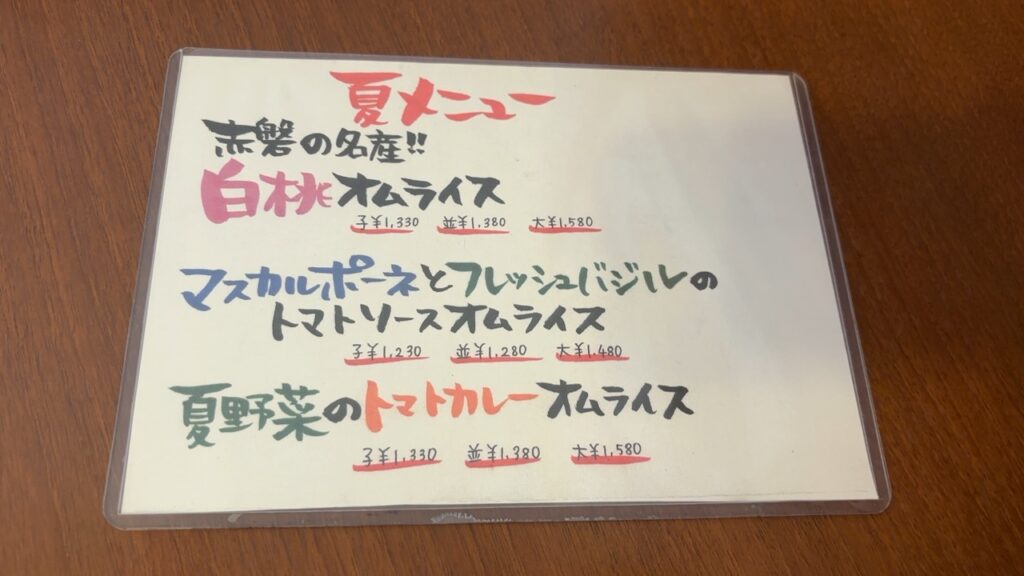 夏メニュー
赤磐の名産!!
白桃オムライス
子¥1,330 並¥1,380 大¥1,580
マスカルポーネとフレッシュバジルの
トマトソースオムライス
子¥1,230 並¥1,280 大¥1,480
夏野菜のトマトカレーオムライス
子¥1,330 並¥1,380 大¥1,580